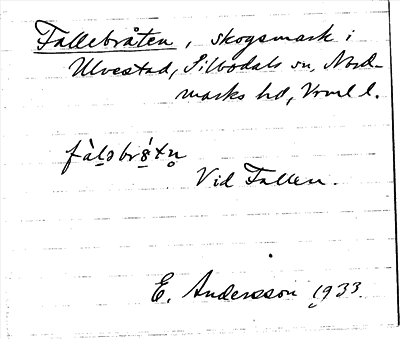 Fallebråten, skogsmark i
Ulvestad, Silbodals sn, Nord-
marks hd, Vrml l.
Vid Fallen.
E. Andersson 1933.